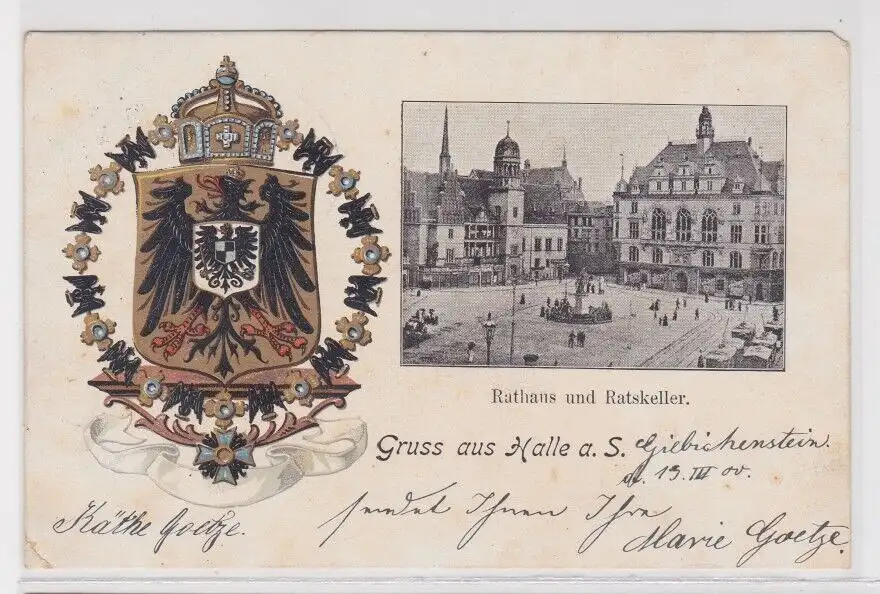 Rathaus und Ratskeller.
Gruss aus Halle a. S. Giebichenstein.
d. 13. III 00.
sendet Ihnen Ihre
Käthe Goetze. Marie Goetze.